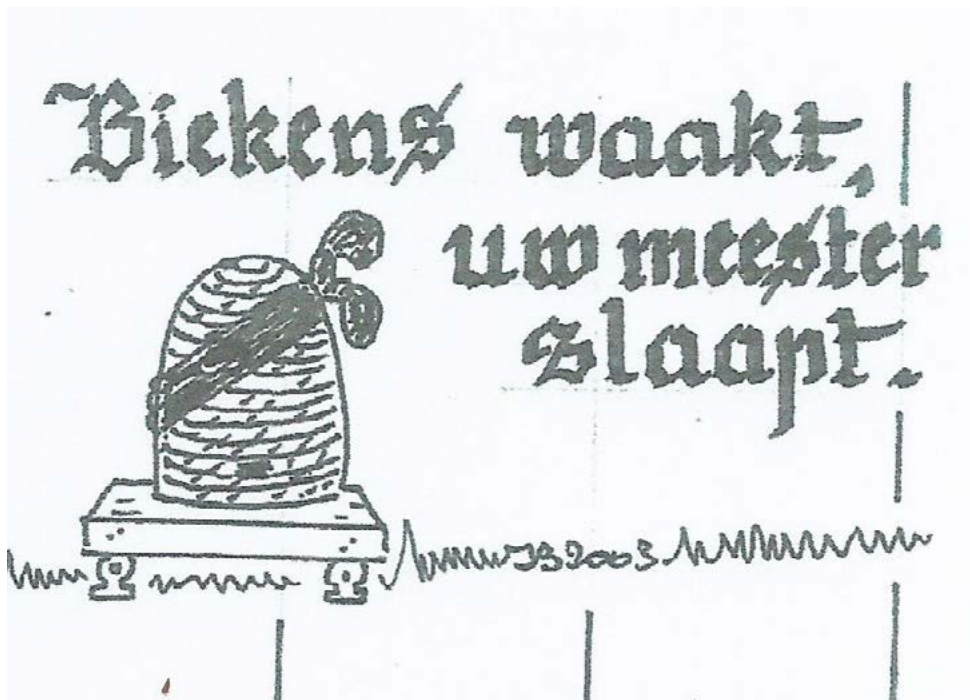 Biekens waakt,
uw meester
slaapt.
JB2003